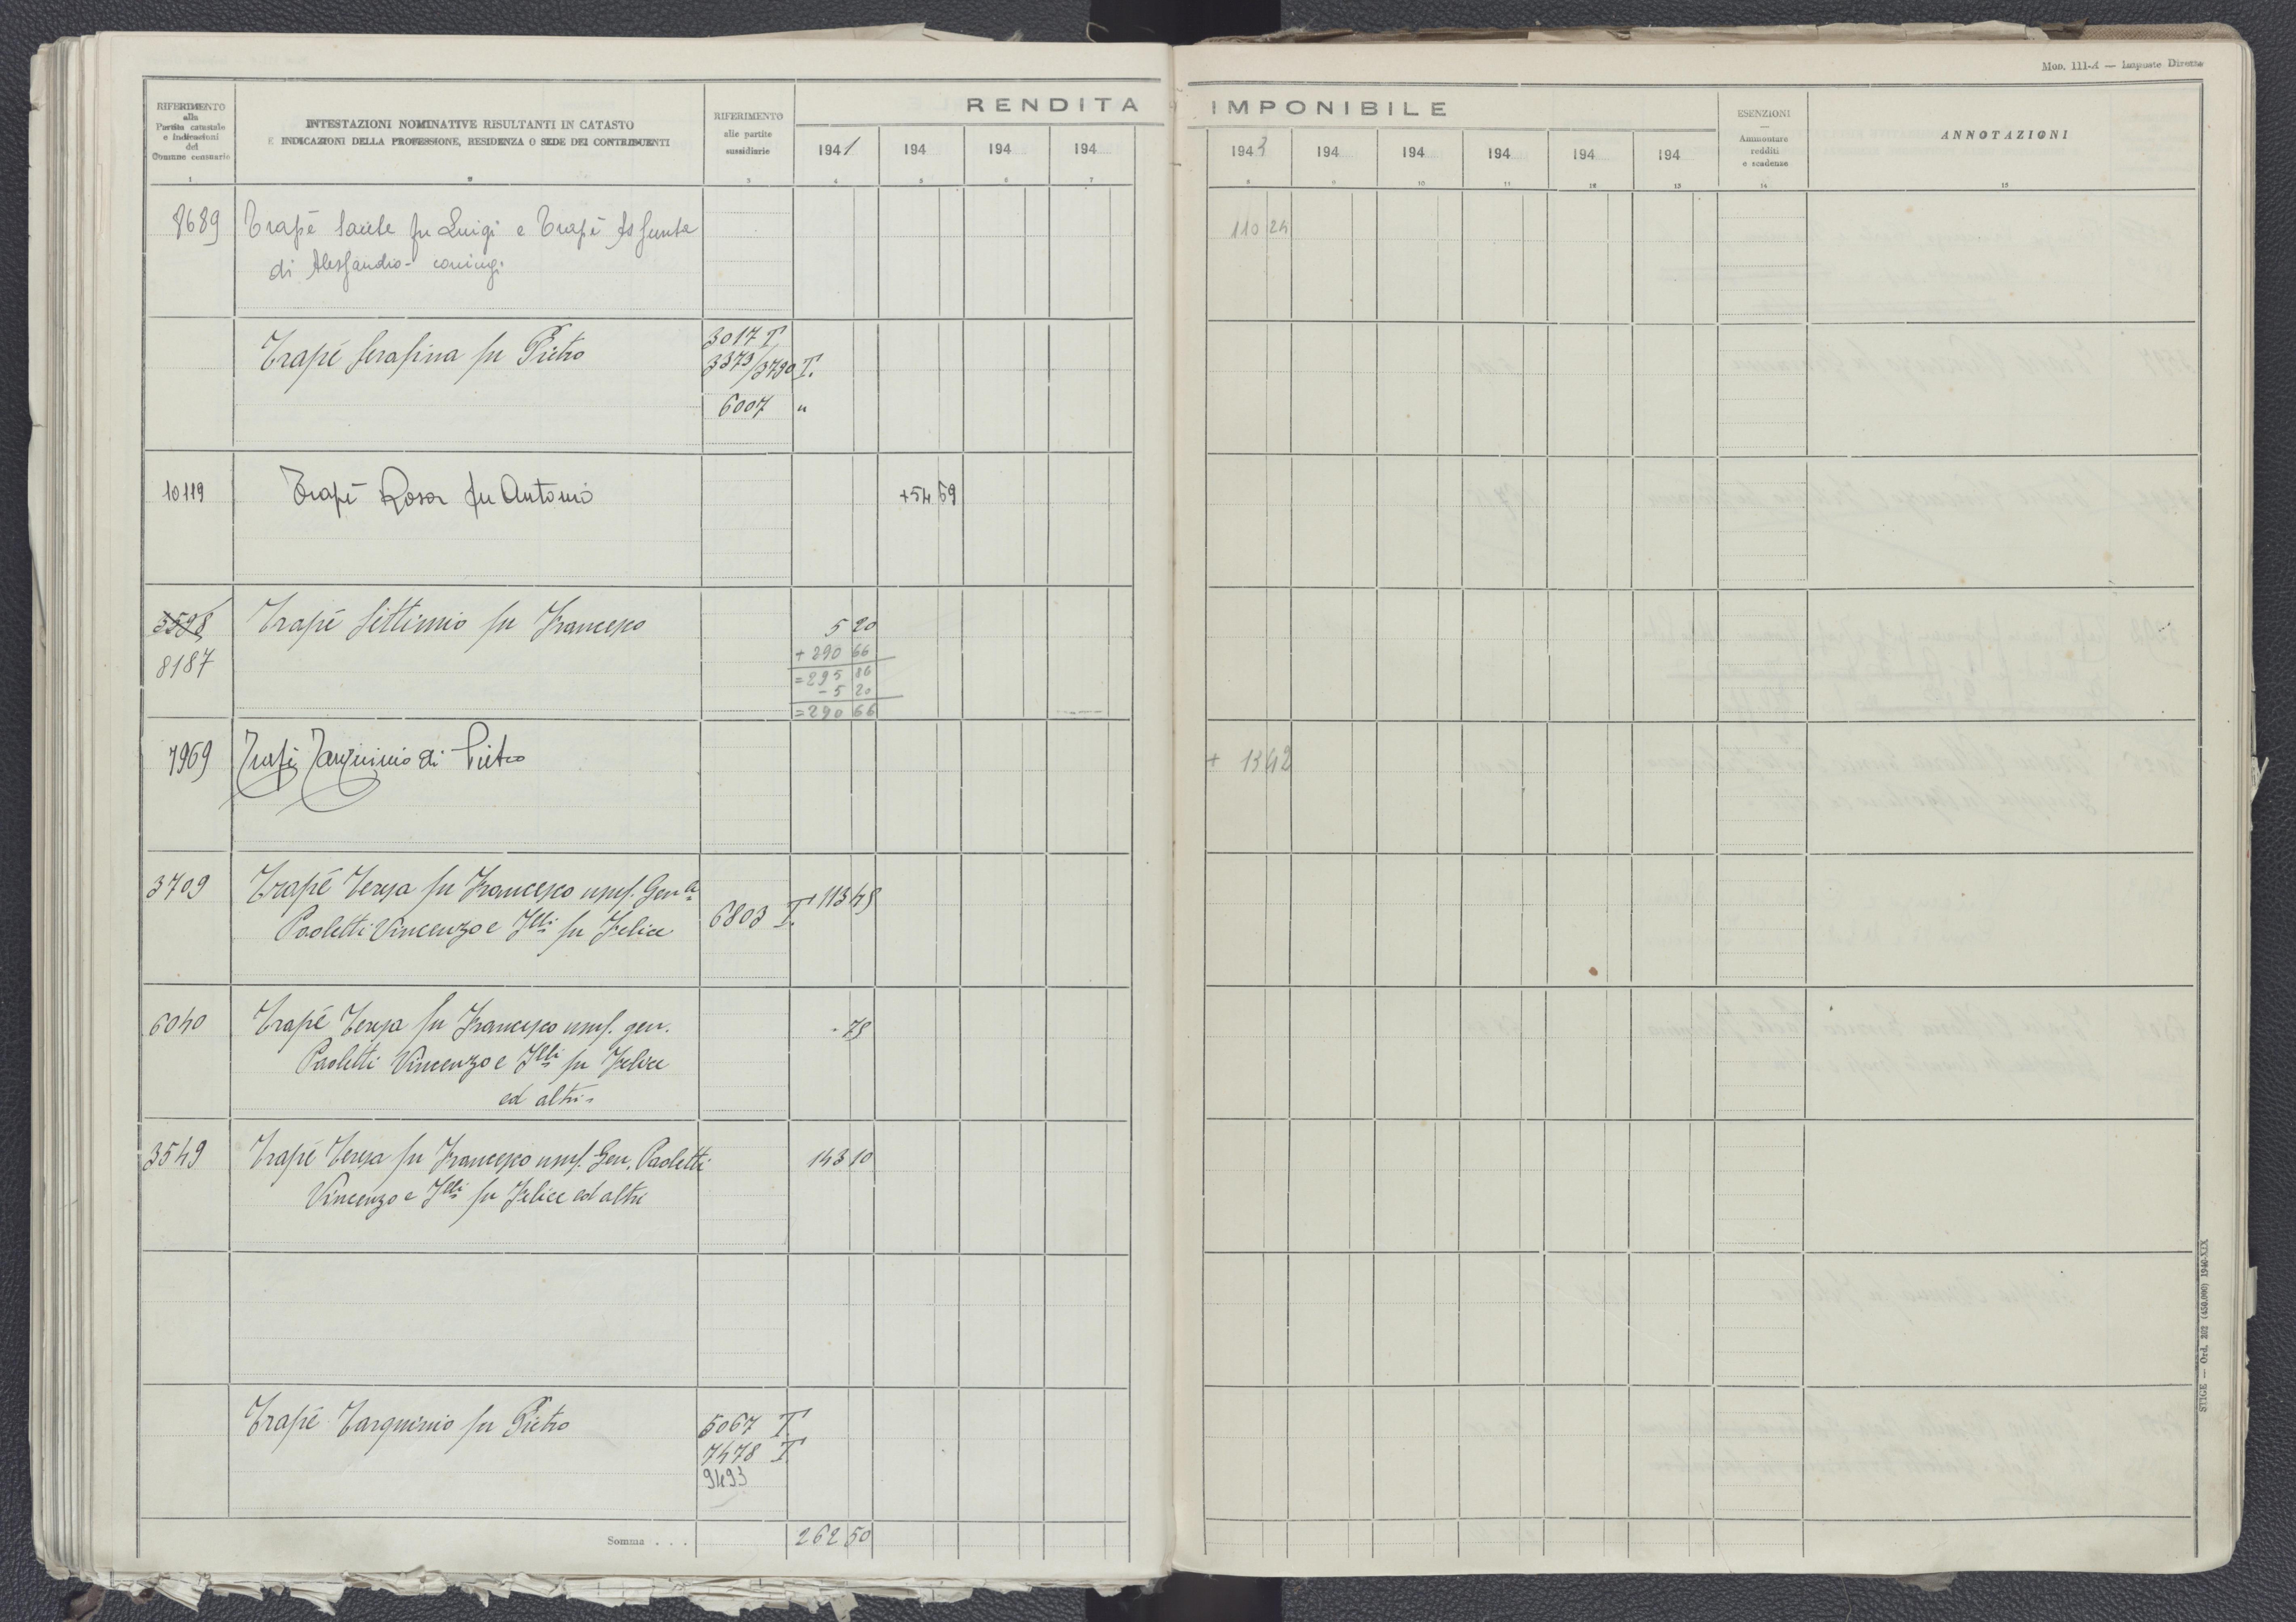 Mod. 111-A — Imposte Dirette
RIFERIMENTO alla Partita catastale e indicazioni del Comune censuario
INTESTAZIONI NOMINATIVE RISULTANTI IN CATASTO
E INDICAZIONI DELLA PROFESSIONE, RESIDENZA O SEDE DEI CONTRIBUENTI
RIFERIMENTO alle partite sussidiarie
RENDITA IMPONIBILE
1941 194 194 194 1943 194 194 194 194 194
ESENZIONI — Ammontare redditi e scadenze
ANNOTAZIONI
1 2 3 4 5 6 7 8 9 10 11 12 13 14 15
8689 Trapé fu Luigi e Trapé Assunta 110 24
di Alessandro - coniugi
Trapé Serafina fu Pietro 3017 T
3373/3790 T.
6007 "
10119 Trapé Rosa fu Antonio +54 69
3598 Trapé Settimio fu Francesco 5 20
8187 + 290 66
= 295 86
- 5 20
= 290 66
7969 Trapé Tarquinio di Pietro + 13 42
3709 Trapé Teresa fu Francesco usuf. Gen.le 113 45
Paoletti Vincenzo e F.lli fu Felice 6803 T.
6040 Trapé Teresa fu Francesco usuf. gen. - 75
Paoletti Vincenzo e F.lli fu Felice
ed altri
3549 Trapé Teresa fu Francesco usuf. Gen. Paoletti 143 10
Vincenzo e F.lli fu Felice ed altri
Trapé Tarquinio fu Pietro 5067 T.
7478 T
9493
Somma . . . 262 50
STIGE — Ord. 202 (450.000) 1940-XIX